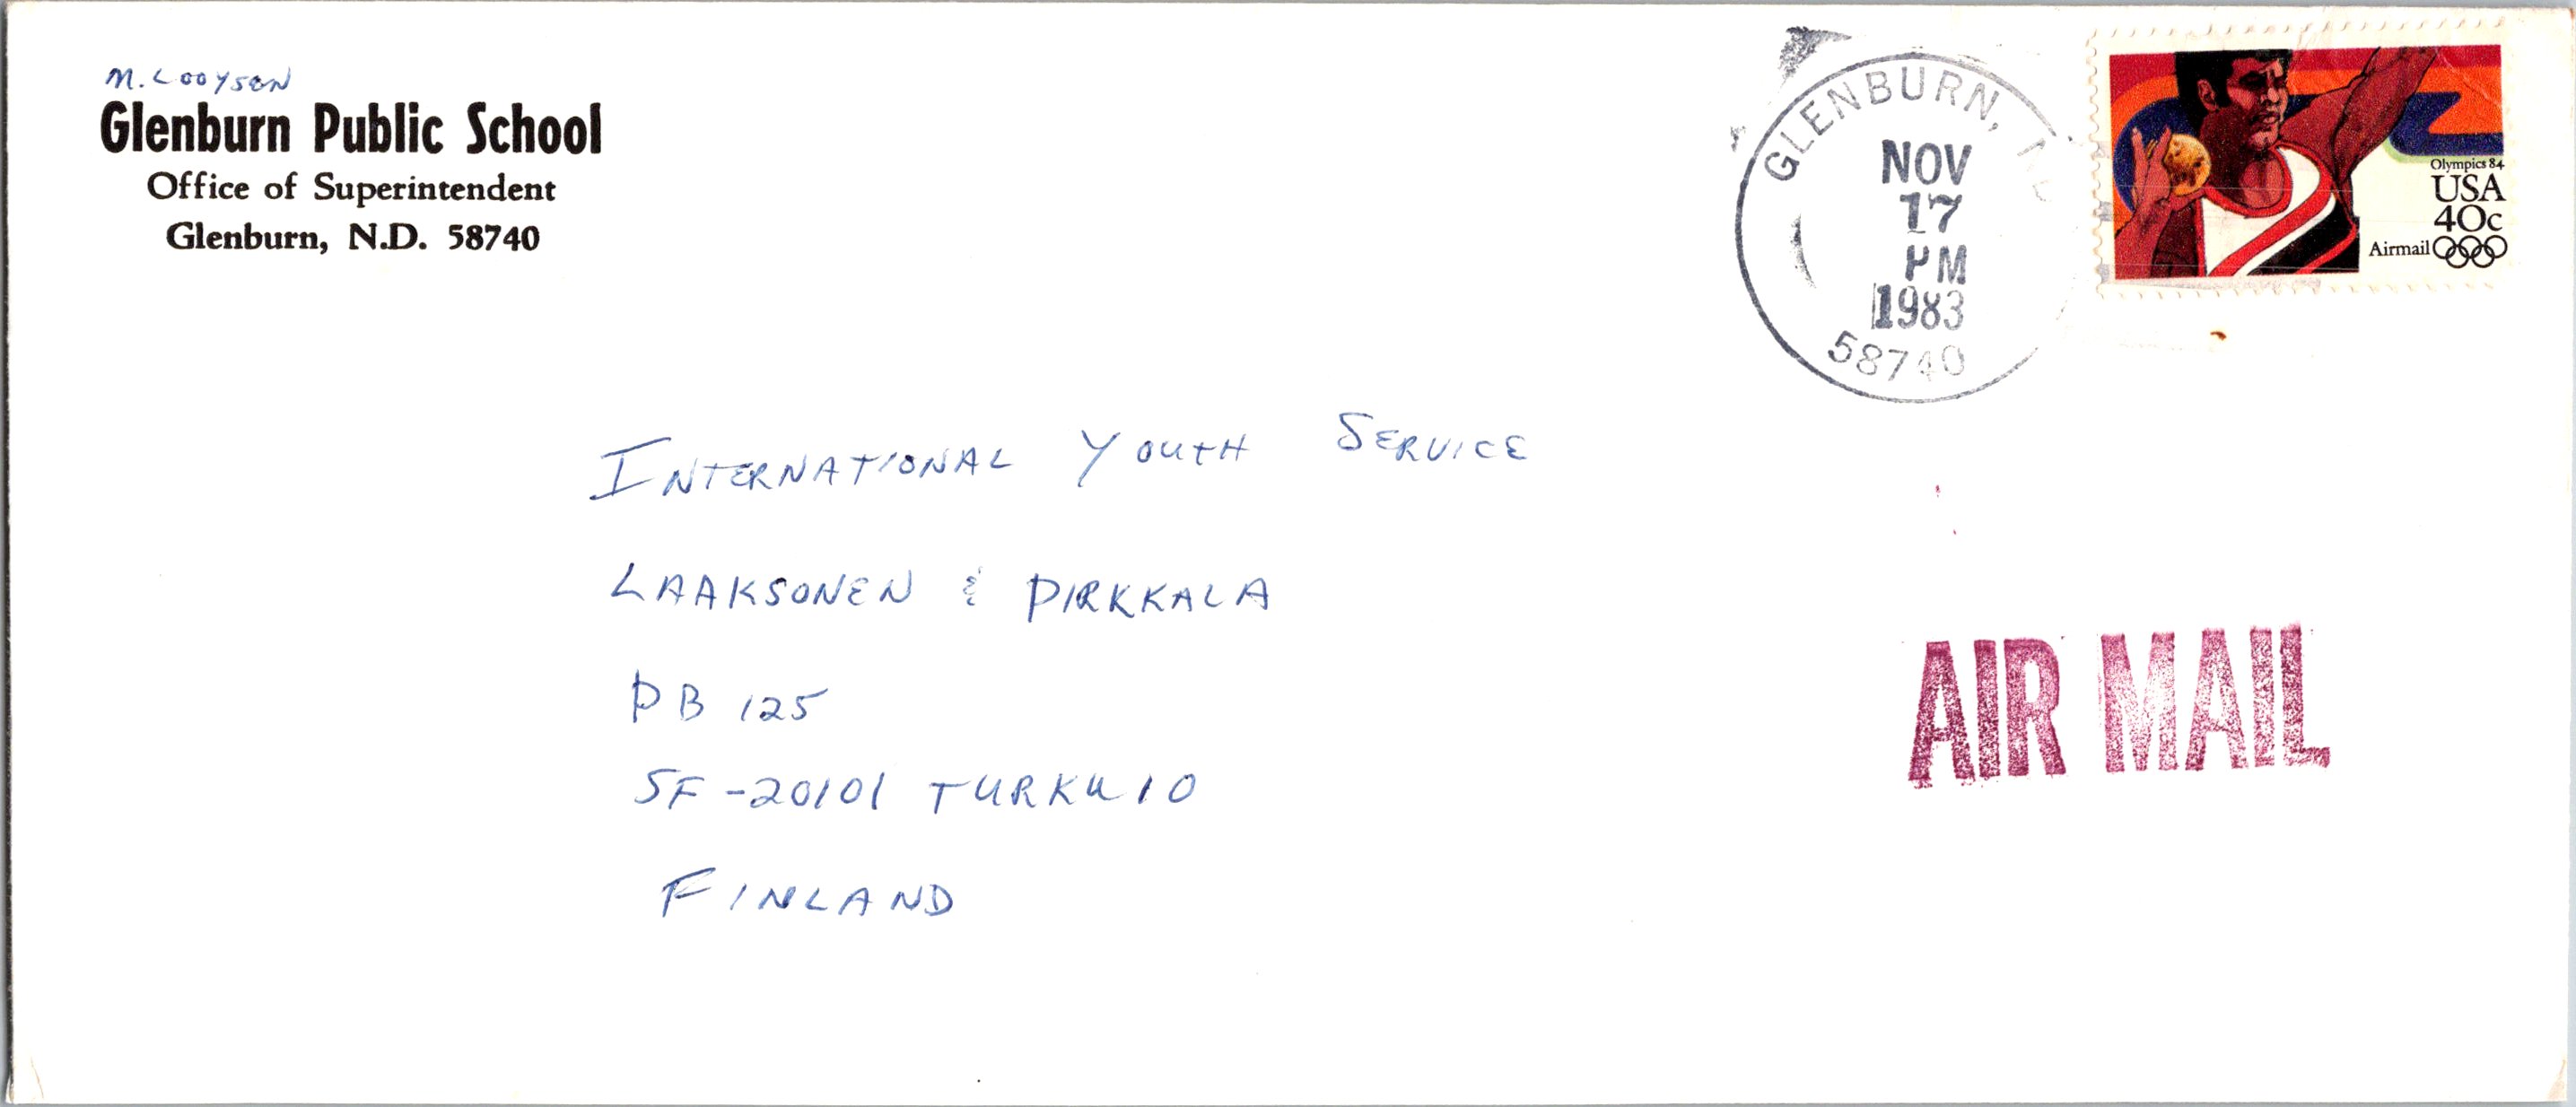 M. Looysen
Glenburn Public School
Office of Superintendent
Glenburn, N.D. 58740
GLENBURN, ND
NOV
17
PM
1983
58740
Olympics 84
USA
40c
Airmail
INTERNATIONAL YOUTH SERVICE
LAAKSONEN & PIRKKALA
PB 125
SF-20101 TURKU 10
FINLAND
AIR MAIL